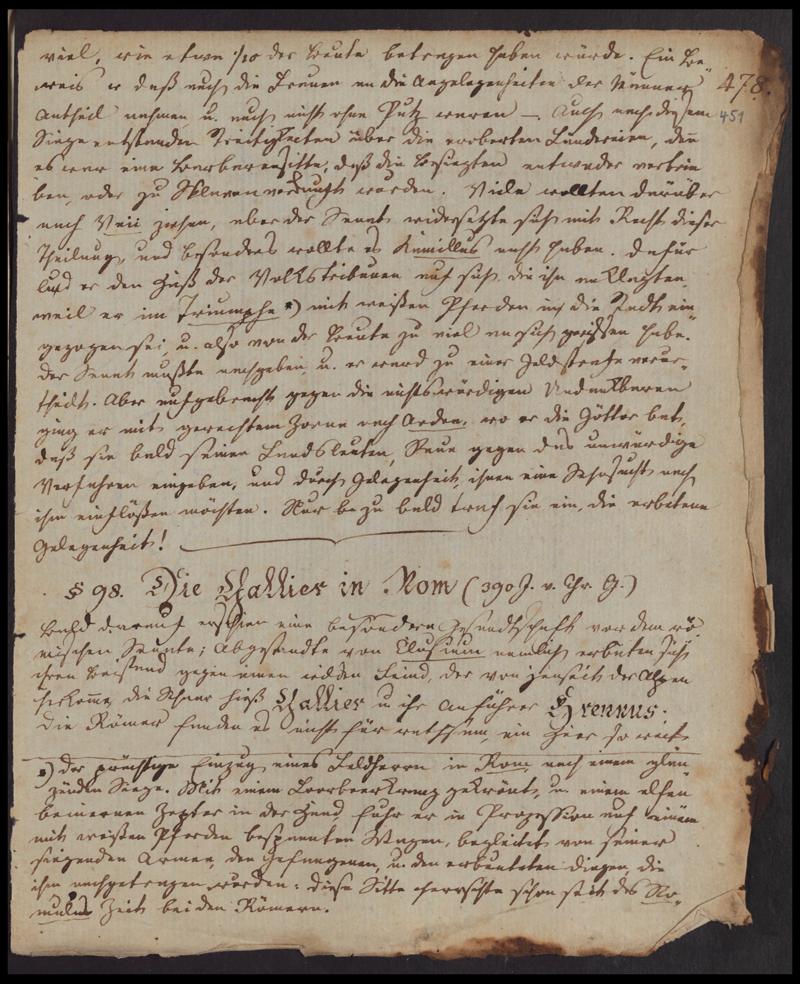 viel, wie etwa 1/10 der Beute betragen haben würde. Ein Be-
weis daß auch die Frauen an die Angelegenheiten der Männer
Antheil nahmen u. auch nicht ohne Putz waren —. Auch nach diesem
478.
451
Siege entstanden Streitigkeiten über die eroberten Ländereien, denn
es war eine Barbarensitte, daß die Besiegten entweder vertrie
ben, oder zu Sklaven verkauft wurden. Viele wollten darüber
nach Veii ziehen, aber der Senat widersetzte sich mit Recht dieser
Theilung, und besonders wollte es Kamillus nicht haben. Dafür
lud er den Haß der Volkstribunen auf sich, die ihn anklagten,
weil er im Triumphe *) mit weißen Pferden in die Stadt ein
gezogen sei, u. also von der Beute zu viel an sich gerissen habe.
Der Senat mußte nachgeben, u. er ward zu einer Geldstrafe verur-
theilt. Aber aufgebracht gegen die nichtswürdigen Undankbaren
ging er mit gerechtem Zorne nach Ardea, wo er die Götter bat,
daß sie bald seinen Landsleuten, Reue gegen das unwürdige
Verfahren eingeben, und durch Gelegenheit, ihnen eine Sehnsucht nach
ihm einflößen möchten. Nur zu bald traf sie ein, die erbetene
Gelegenheit!
§ 98. Die Gallier in Rom (390 J. v. Chr. G.)
Bald darauf erschien eine besondere Gesandtschaft vor dem rö
mischen Senate; Abgesandte von Clusium nemlich erbaten sich
ihren Beistand gegen einen wilden Feind, der von jenseit der Alpen
herkomme, die Schaar hieß Gallier u. ihr Anführer Brennus.
Die Römer fanden es nicht für rathsam, ein Heer so weit
*) Der prächtige Einzug eines Feldherrn in Rom, nach einem glän
zenden Siege. Mit einem Loorbeerkranz gekrönt, u. einem elfen
beinernen Zepter in der Hand, fuhr er in Prozession auf einem
mit weißen Pferden bespannten Wagen, begleitet von seiner
siegenden Armee, den Gefangenen, u. den erbeuteten Dingen, die
ihm nachgetragen wurden: diese Sitte herrschte schon seit des Ro-
mulus Zeit bei den Römern.